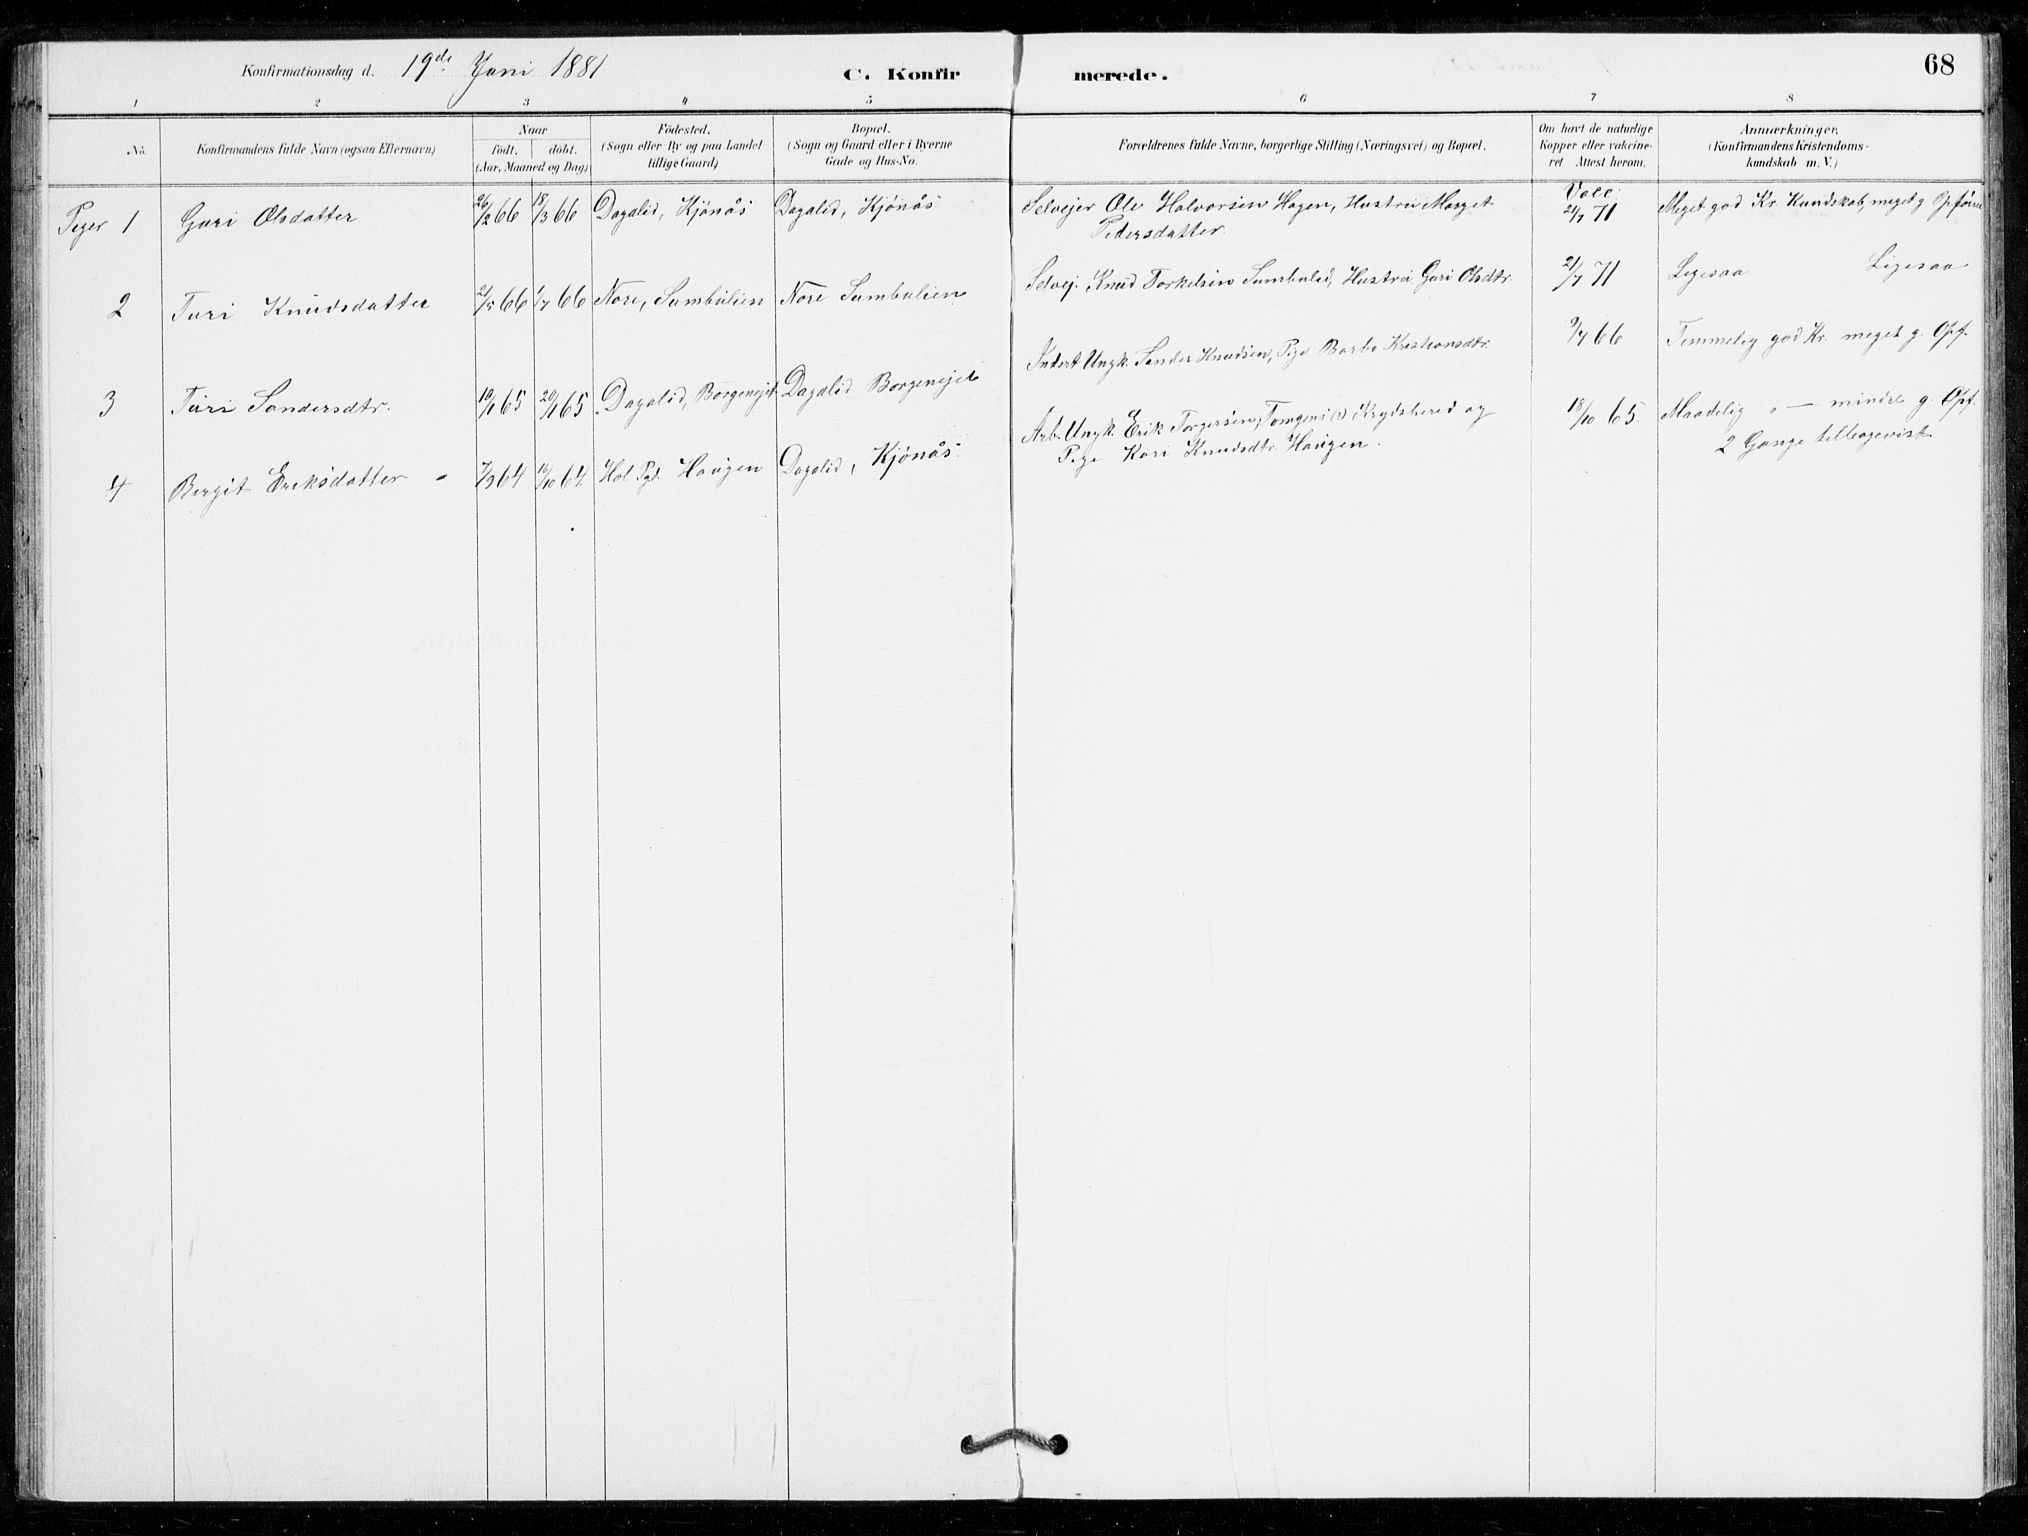 Konfirmationsdag d. 19de Juni 1881 C. Konfirmerede. 68
1 2 3 4 5 6 7 8
No. Konfirmandens fulde Navn (ogsaa Efternavn) Naar födt. döbt. (Aar, Maaned og Dag) Födested. (Sogn eller By og paa Landet tillige Gaard) Bopæl. (Sogn og Gaard eller i Byerne Gade og Hus-No. Forældrenes fulde Navne, borgerlige Stilling (Næringsvei) og Bopæl. Om havt de naturlige Kopper eller vakcineret Attest herom. Anmærkninger. (Konfirmandens Kristendomskundskab m. V.)
Piger 1 Guri Olsdatter 26/2 66 18/3 66 Dagalid, Kjönås Dagalid, Kjönås Selvejer Ole Halvorsen Hagen, Hustru Marget Vacc. 21/7 71 Meget god Kr. Kundskab, meget g Opförse
Pedersdatter.
2 Turi Knudsdatter 21/5 66 1/7 66 Nore, Sumbulien Nore Sumbulien Selvej. Knud Torkelsen Sumbulid, Hustru Guri Olsdtr. 21/7 71 Ligesaa Ligesaa
3 Turi Sandersdtr. 10/1 65 20/1 65 Dagalid, Borgenejet Dagalid Borgenejet Inderst Ungk. Sander Knudsen, Pige Barbo Kristiansdtr. 9/7 66 Temmelig god Kr. meget g. Opf.
4 Birgit Eriksdatter 7/9 64 16/10 64 Hol Pgd. Haugen Dagalid, Kjönås. Arb. Ungk. Erik Torgersen, (?) i Krydshered og 18/10 65. Maadelig " — mindre g. Opf.
Pige Kari Knudsdtr. Haugen. 2 Gange tilbagevist.